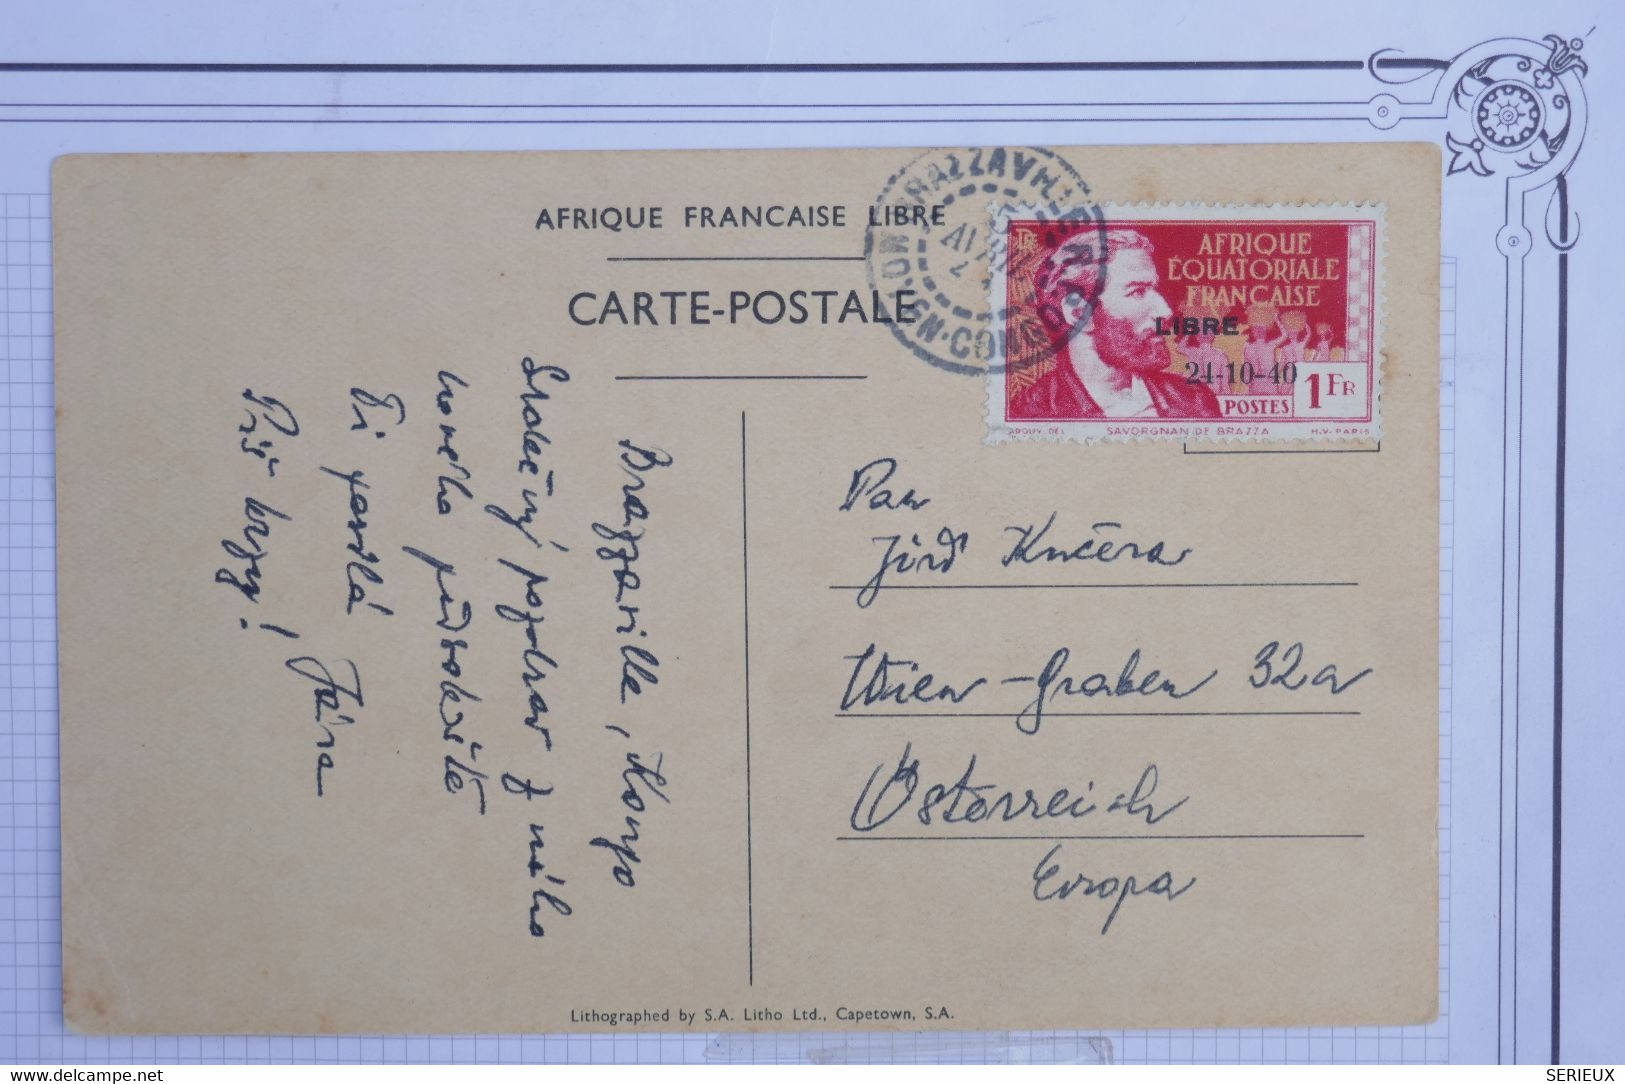 AFRIQUE FRANCAISE LIBRE
CARTE-POSTALE
BRAZZAVILLE
AVRIL
MOYEN-CONGO
RF
AFRIQUE
ÉQUATORIALE
FRANÇAISE
LIBRE
24-10-40
POSTES
1 FR
SAVORGNAN DE BRAZZA
H.V. PARIS
Brazzaville, Kongo
Srdečný pozdrav z mého
nového působiště
Ti posílá
Jára
Piš brzy!
Pan
Jiří Kučera
Wien - Graben 32a
Österreich
Evropa
Lithographed by S.A. Litho Ltd., Capetown, S.A.
delcampe.net
SERIEUX